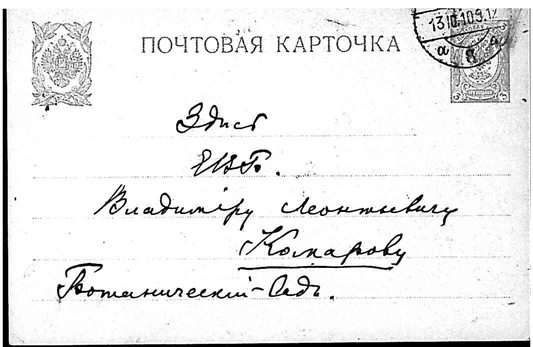 ПОЧТОВАЯ КАРТОЧКА
13.10.10
Здѣсь
ЕВБ.
Владимiру Леонтьевичу
Комарову
Ботаническiй-Садъ.